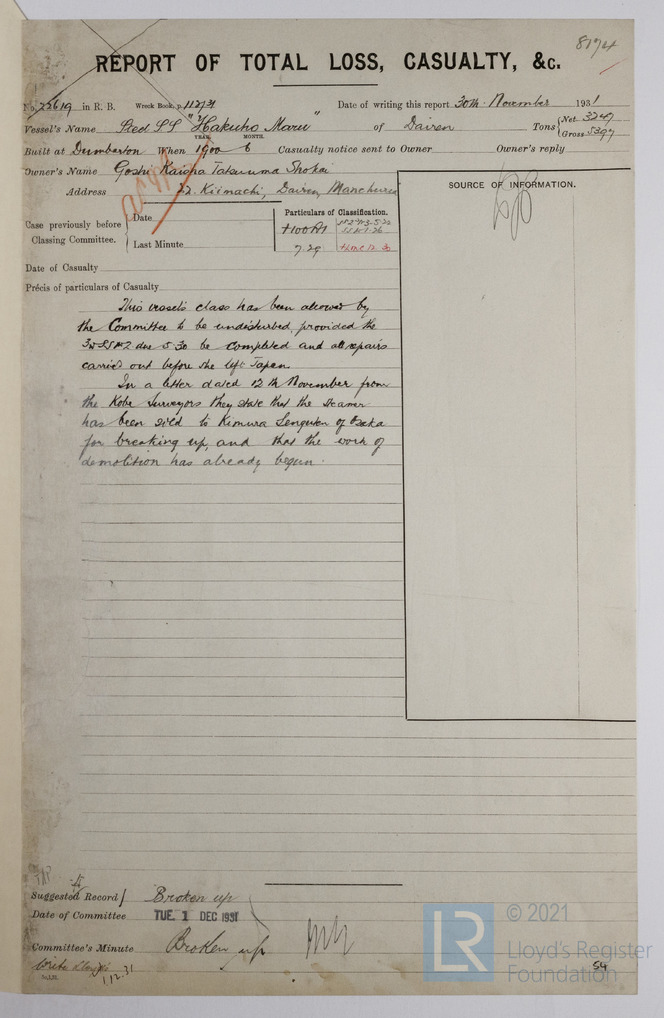 8174
REPORT OF TOTAL LOSS, CASUALTY, &c.
No. 22619 in R. B. Wreck Book, p. 112/31 Date of writing this report 30th November 1931
Vessel's Name Steel SS "Hakuho Maru" of Dairen Tons { Net 3249 Gross 5397
YEAR. MONTH.
Built at Dumbarton When 1900 6 Casualty notice sent to Owner Owner's reply
Owner's Name Goshi Kaisha Tatsuuma Shokai
Address 22, Kiimachi, Dairen, Manchuria
SOURCE OF INFORMATION.
Case previously before Classing Committee. { Date Last Minute
Particulars of Classification.
+100A1
7.29 +LMC 12.30
Date of Casualty
Précis of particulars of Casualty
This vessel's class has been allowed by
the Committee to be undisturbed, provided the
3rd SS No 2 due 5.30 be completed and all repairs
carried out before she left Japan.
In a letter dated 12th November from
the Kobe Surveyors they state that the steamer
has been sold to Kimura Senguten of Osaka
for breaking up, and that the work of
demolition has already begun.
Suggested Record Broken up
Date of Committee TUE. 1 DEC 1931
Committee's Minute Broken up
1.12.31
54
LR
© 2021
Lloyd's Register
Foundation